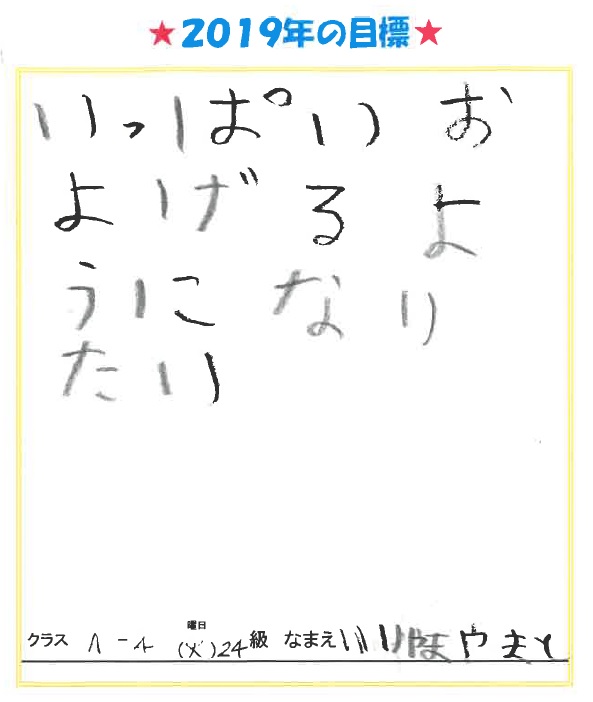 ★2019年の目標★
いっぱい お
よげるよ
うに なり
たい
曜日
クラス (火)24級 なまえ いりやま やまと